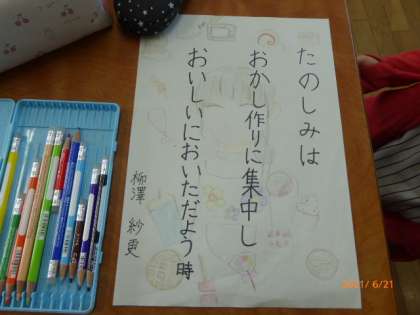 たのしみは
おかし作りに集中し
おいしいにおいただよう時
柳澤 紗更
2021/ 6/21